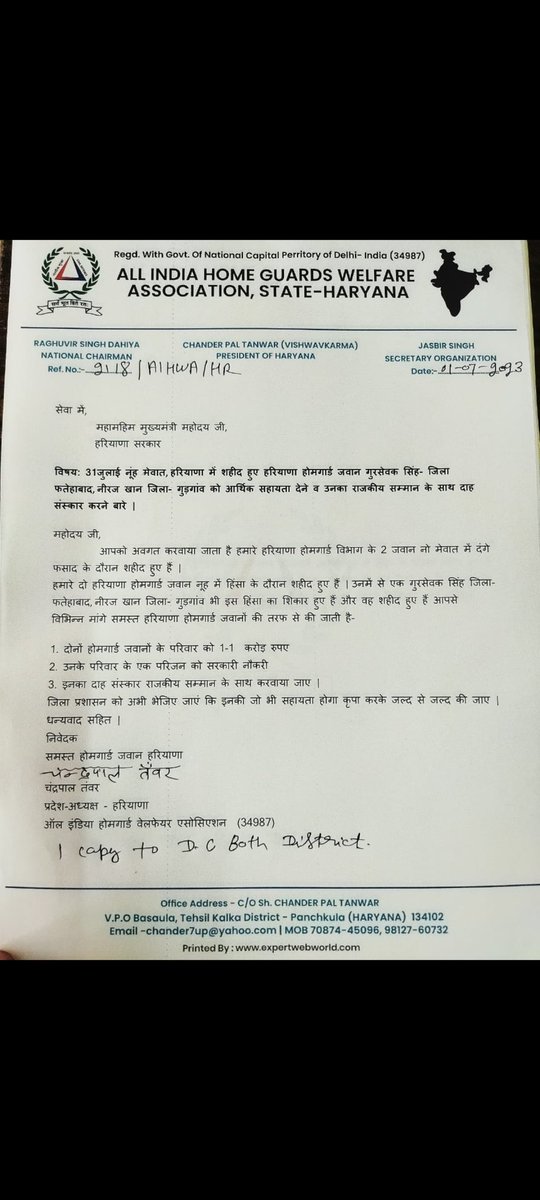 Regd. With Govt. Of National Capital Perritory of Delhi- India (34987)
ALL INDIA HOME GUARDS WELFARE
ASSOCIATION, STATE-HARYANA
RAGHUVIR SINGH DAHIYA
NATIONAL CHAIRMAN
CHANDER PAL TANWAR (VISHWAVKARMA)
PRESIDENT OF HARYANA
JASBIR SINGH
SECRETARY ORGANIZATION
Ref. No:- 2118/AIHWA/HR
Date:- 01-07-2023
सेवा में,
महामहिम मुख्यमंत्री महोदय जी,
हरियाणा सरकार
विषय: 31जुलाई नूंह मेवात, हरियाणा में शहीद हुए हरियाणा होमगार्ड जवान गुरसेवक सिंह- जिला
फतेहाबाद, नीरज खान जिला- गुड़गांव को आर्थिक सहायता देने व उनका राजकीय सम्मान के साथ दाह
संस्कार करने बारे |
महोदय जी,
आपको अवगत करवाया जाता है हमारे हरियाणा होमगार्ड विभाग के 2 जवान नो मेवात में दंगे
फसाद के दौरान शहीद हुए हैं |
हमारे दो हरियाणा होमगार्ड जवान नूह में हिंसा के दौरान शहीद हुए हैं | उनमें से एक गुरसेवक सिंह जिला-
फतेहाबाद, नीरज खान जिला- गुडगांव भी इस हिंसा का शिकार हुए हैं और वह शहीद हुए हैं आपसे
विभिन्न मांगे समस्त हरियाणा होमगार्ड जवानों की तरफ से की जाती है-
1. दोनों होमगार्ड जवानों के परिवार को 1-1 करोड़ रुपए
2. उनके परिवार के एक परिजन को सरकारी नौकरी
3. इनका दाह संस्कार राजकीय सम्मान के साथ करवाया जाए |
जिला प्रशासन को अभी भेजिए जाएं कि इनकी जो भी सहायता होगा कृपा करके जल्द से जल्द की जाए |
धन्यवाद सहित |
निवेदक
समस्त होमगार्ड जवान हरियाणा
चन्द्रपाल तँवर
चंद्रपाल तंवर
प्रदेश-अध्यक्ष - हरियाणा
ऑल इंडिया होमगार्ड वेलफेयर एसोसिएशन (34987)
1 capy to D.C Both District.
Office Address - C/O Sh. CHANDER PAL TANWAR
V.P.O Basaula, Tehsil Kalka District - Panchkula (HARYANA) 134102
Email -chander7up@yahoo.com | MOB 70874-45096, 98127-60732
Printed By : www.expertwebworld.com